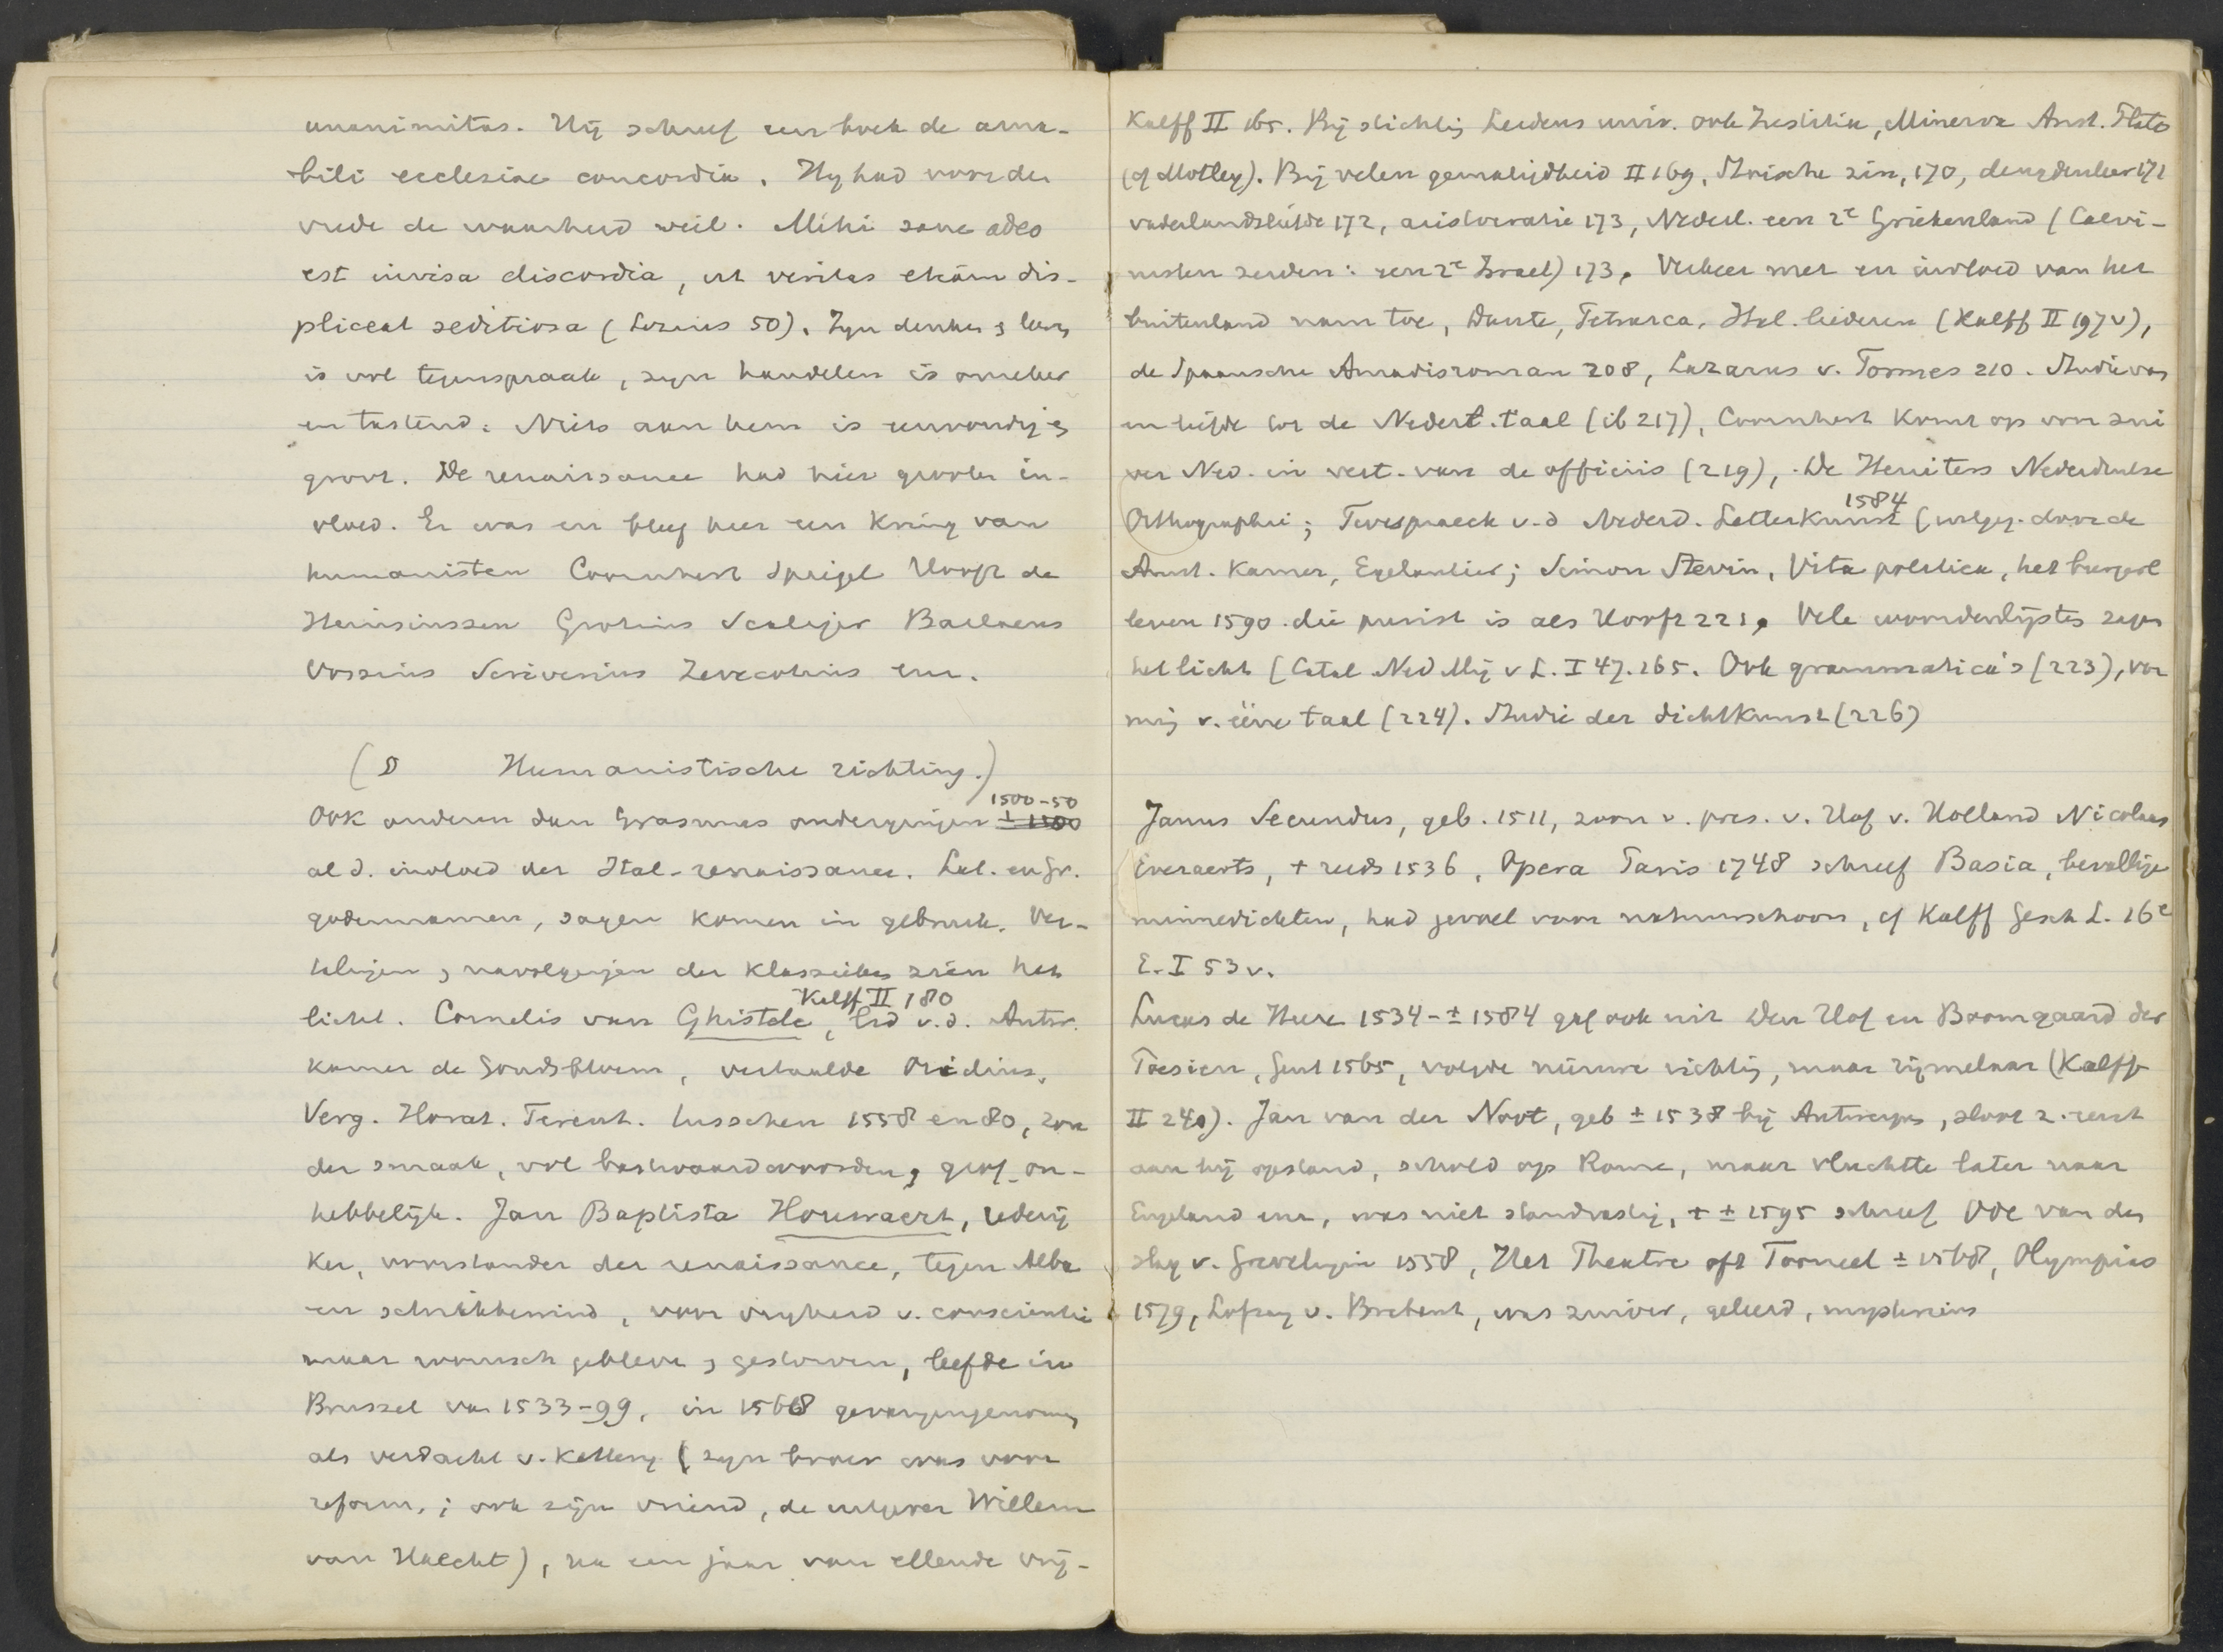 unanimitas. Hij schreef een boek de ama-
bili ecclesiae concordia. Hij had voor den
vrede de waarheid veil. Mihi sane adeo
est invisa discordia, ut veritas etiam dis-
pliceat seditiosa (Lezius 50). Zijn denken & leven
is vol tegenspraak, zijn handelen is onzeker
en tastend. Niets aan hem is eenvoudig &
groot. De renaissance had hier grooten in-
vloed. Er was en bleef hier een kring van
humanisten Coornhert Spiegel Hooft de
Heinsiussen Grotius Scaliger Barlaeus
Vossius Scriverius Zevecotius enz.
(§ Humanistische richting.)
1500-50
Ook anderen dan Erasmus ondergingen ± 1500
al d. invloed der Ital. renaissance. Lat. en Gr.
godennamen, sagen komen in gebruik. Ver-
talingen & navolgingen der klassieken zien het
Kalff II 180
licht. Cornelis van Ghistele, lid v.d. Antw.
kamer de Goudsbloem, vertaalde Ovidius,
Verg. Horat. Terent. tusschen 1558 en 80, zon
der smaak, vol bastaardwoorden, grof, on-
hebbelijk. Jan Baptista Houwaert, rederij
ker, voorstander der renaissance, tegen Alba
en schrikbewind, voor vrijheid v. conscientie
maar roomsch gebleven & gestorven, leefde in
Brussel van 1533-99, in 1568 gevangengenomen
als verdacht v. ketterij (zijn broer was voor
reform.; ook zijn vriend, de uitgever Willem
van Haecht), na een jaar van ellende vrij-
Kalff II 165. Bij stichting Leidens univ. ook Justitia, Minerva Arist. Plato
(cf Motley). Bij velen gemakzijdheid II 169, Stoische zin, 170, deugdenleer 171
vaderlandsliefde 172, aristocratie 173, Nederl. een 2e Griekenland (Calvi-
nisten zeiden: een 2e Israel) 173. Verkeer met en invloed van het
buitenland nam toe, Dante, Petrarca, Ital. liederen (Kalff II 197v),
de Spaansche Amadisroman 208, Lazarus v. Tormes 210. Studie van
en liefde tot de Nederl. taal (ib 217), Coornhert komt op voor zui
ver Ned. in vert. van de officiis (219), De Heuiters Nederduitse
1584
Orthographie; Twespraeck v.d Nederd. Letterkunst (uitgeg. door de
Amst. kamer, Egelantier; Simon Stevin, Vita politica, het burgerl
leven 1590 die purist is als Hooft 221. Vele woordenlijsten zagen
het licht (Catal Ned Mij v L. I 47. 265. Ook grammatica's (223), vor
ming v. ééne taal (224). Studie der dichtkunst (226)
Janus Secundus, geb. 1511, zoon v. pres. v. Hof v. Holland Nicolaus
Everaerts, † reeds 1536, Opera Paris 1748 schreef Basia, bevallige
minnedichten, had gevoel voor natuurschoon, cf Kalff Gesch L. 16e
E. I 53v.
Lucas de Heere 1534-±1584 gaf ook uit Den Hof en Boomgaard der
Poesien, Gent 1565, volgde nieuwe richting, maar rijmelaar (Kalff
II 240). Jan van der Noot, geb ± 1538 bij Antwerpen, sloot z. eerst
aan bij opstand, schold op Rome, maar vluchtte later naar
Engeland enz, was niet standvastig, † ± 1595 schreef Ode van den
slag v. Grevelingen 1558, Het Theatre oft Tooneel ± 1568, Olympias
1579, Lofzang v. Brabant, was zuiver, geleerd, mysterieus